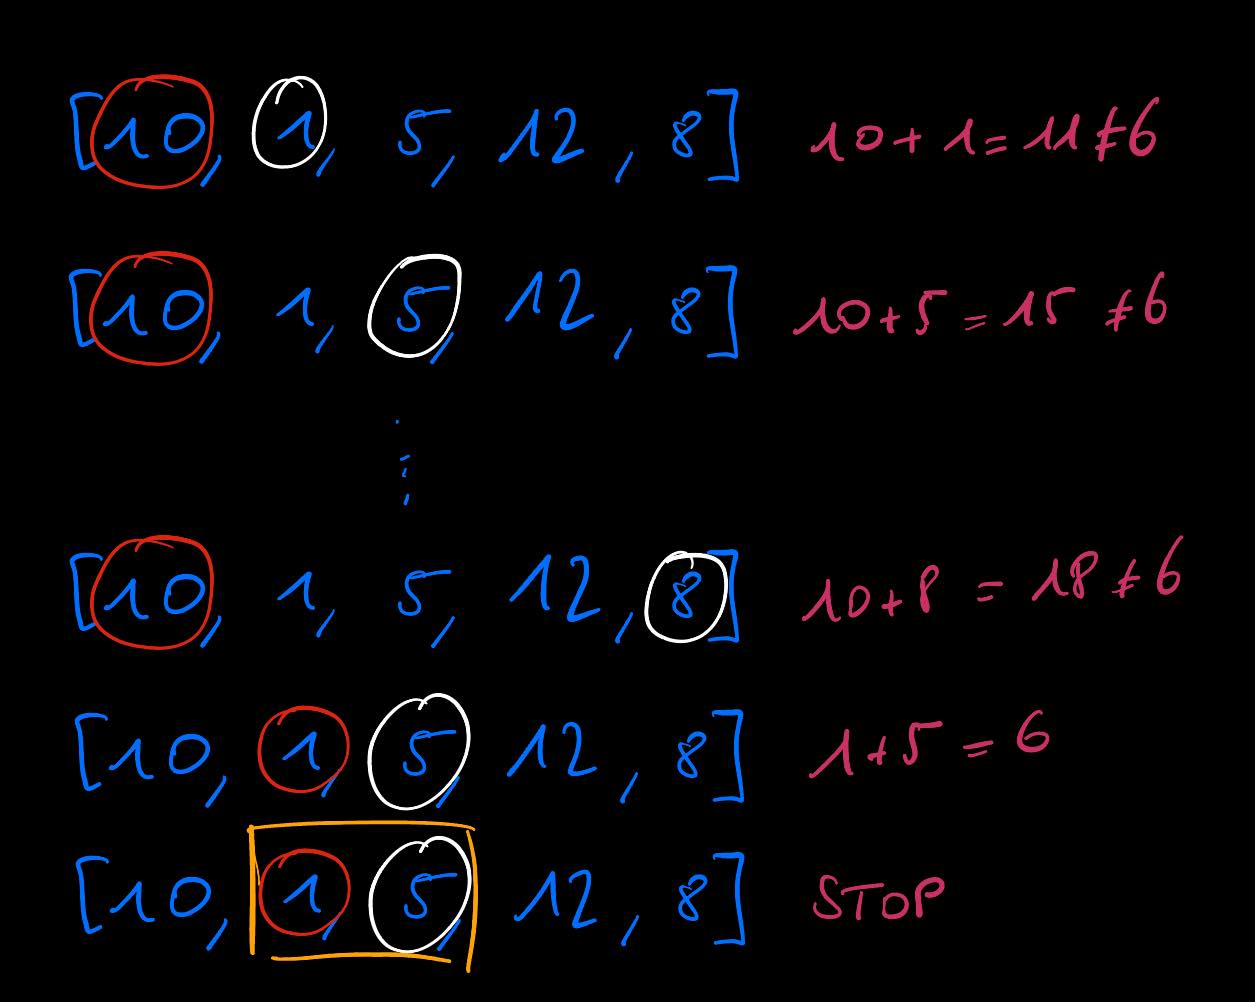 [10, 1, 5, 12, 8] 10+1=11≠6
[10, 1, 5, 12, 8] 10+5=15 ≠6
⋮
[10, 1, 5, 12, 8] 10+8 = 18≠6
[10, 1, 5, 12, 8] 1+5=6
[10, 1, 5, 12, 8] STOP